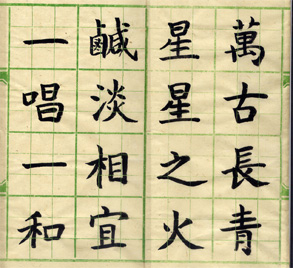 萬古長青
星星之火
鹹淡相宜
一唱一和